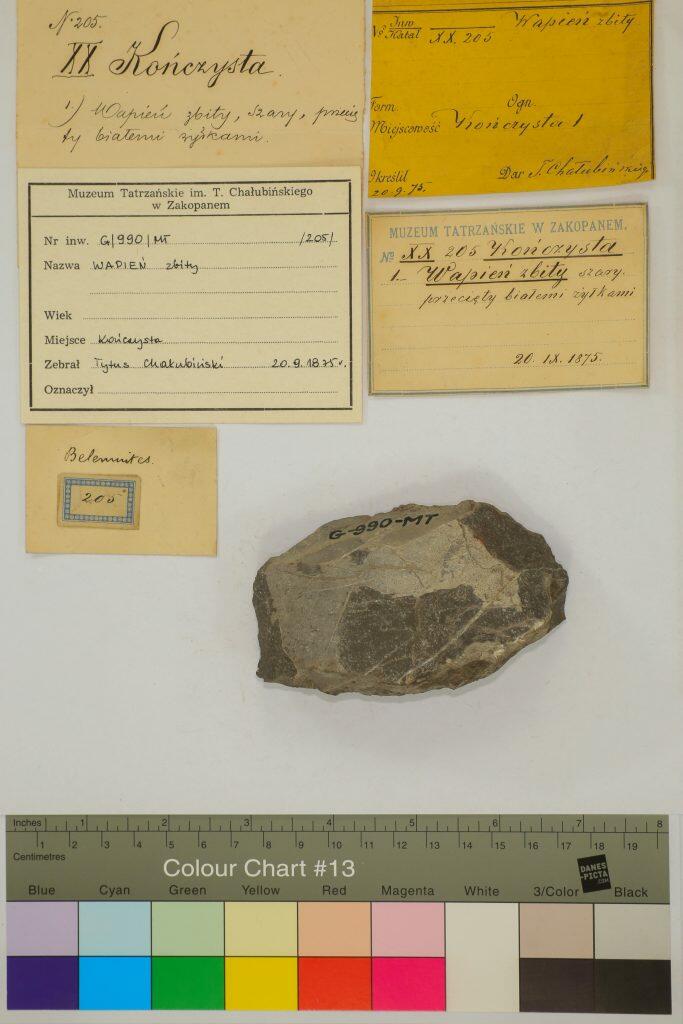 N. 205.
XX Kończysta.
1.) Wapień zbity, szary, przecię
ty białemi żyłkami.
No Inw. XX. 205 Wapień zbity
Katal
Form Ogn.
Miejscowość Kończysta 1
Określił Dar T. Chałubińskiego
20.9.75.
Muzeum Tatrzańskie im. T. Chałubińskiego
w Zakopanem
Nr inw. G/990/MT /205/
Nazwa WAPIEŃ zbity
Wiek
Miejsce Kończysta
Zebrał Tytus Chałubiński 20.9.1875r.
Oznaczył
MUZEUM TATRZAŃSKIE W ZAKOPANEM.
№ XX 205 Kończysta
1. Wapień zbity szary.
przecięty białemi żyłkami
20. IX. 1875.
Belemnites.
205
G-990-MT
Inches 1 2 3 4 5 6 7 8
1 2 3 4 5 6 7 8 9 10 11 12 13 14 15 16 17 18 19
Centimetres
Colour Chart #13
DANES
-PICTA
.COM
Blue Cyan Green Yellow Red Magenta White 3/Color Black